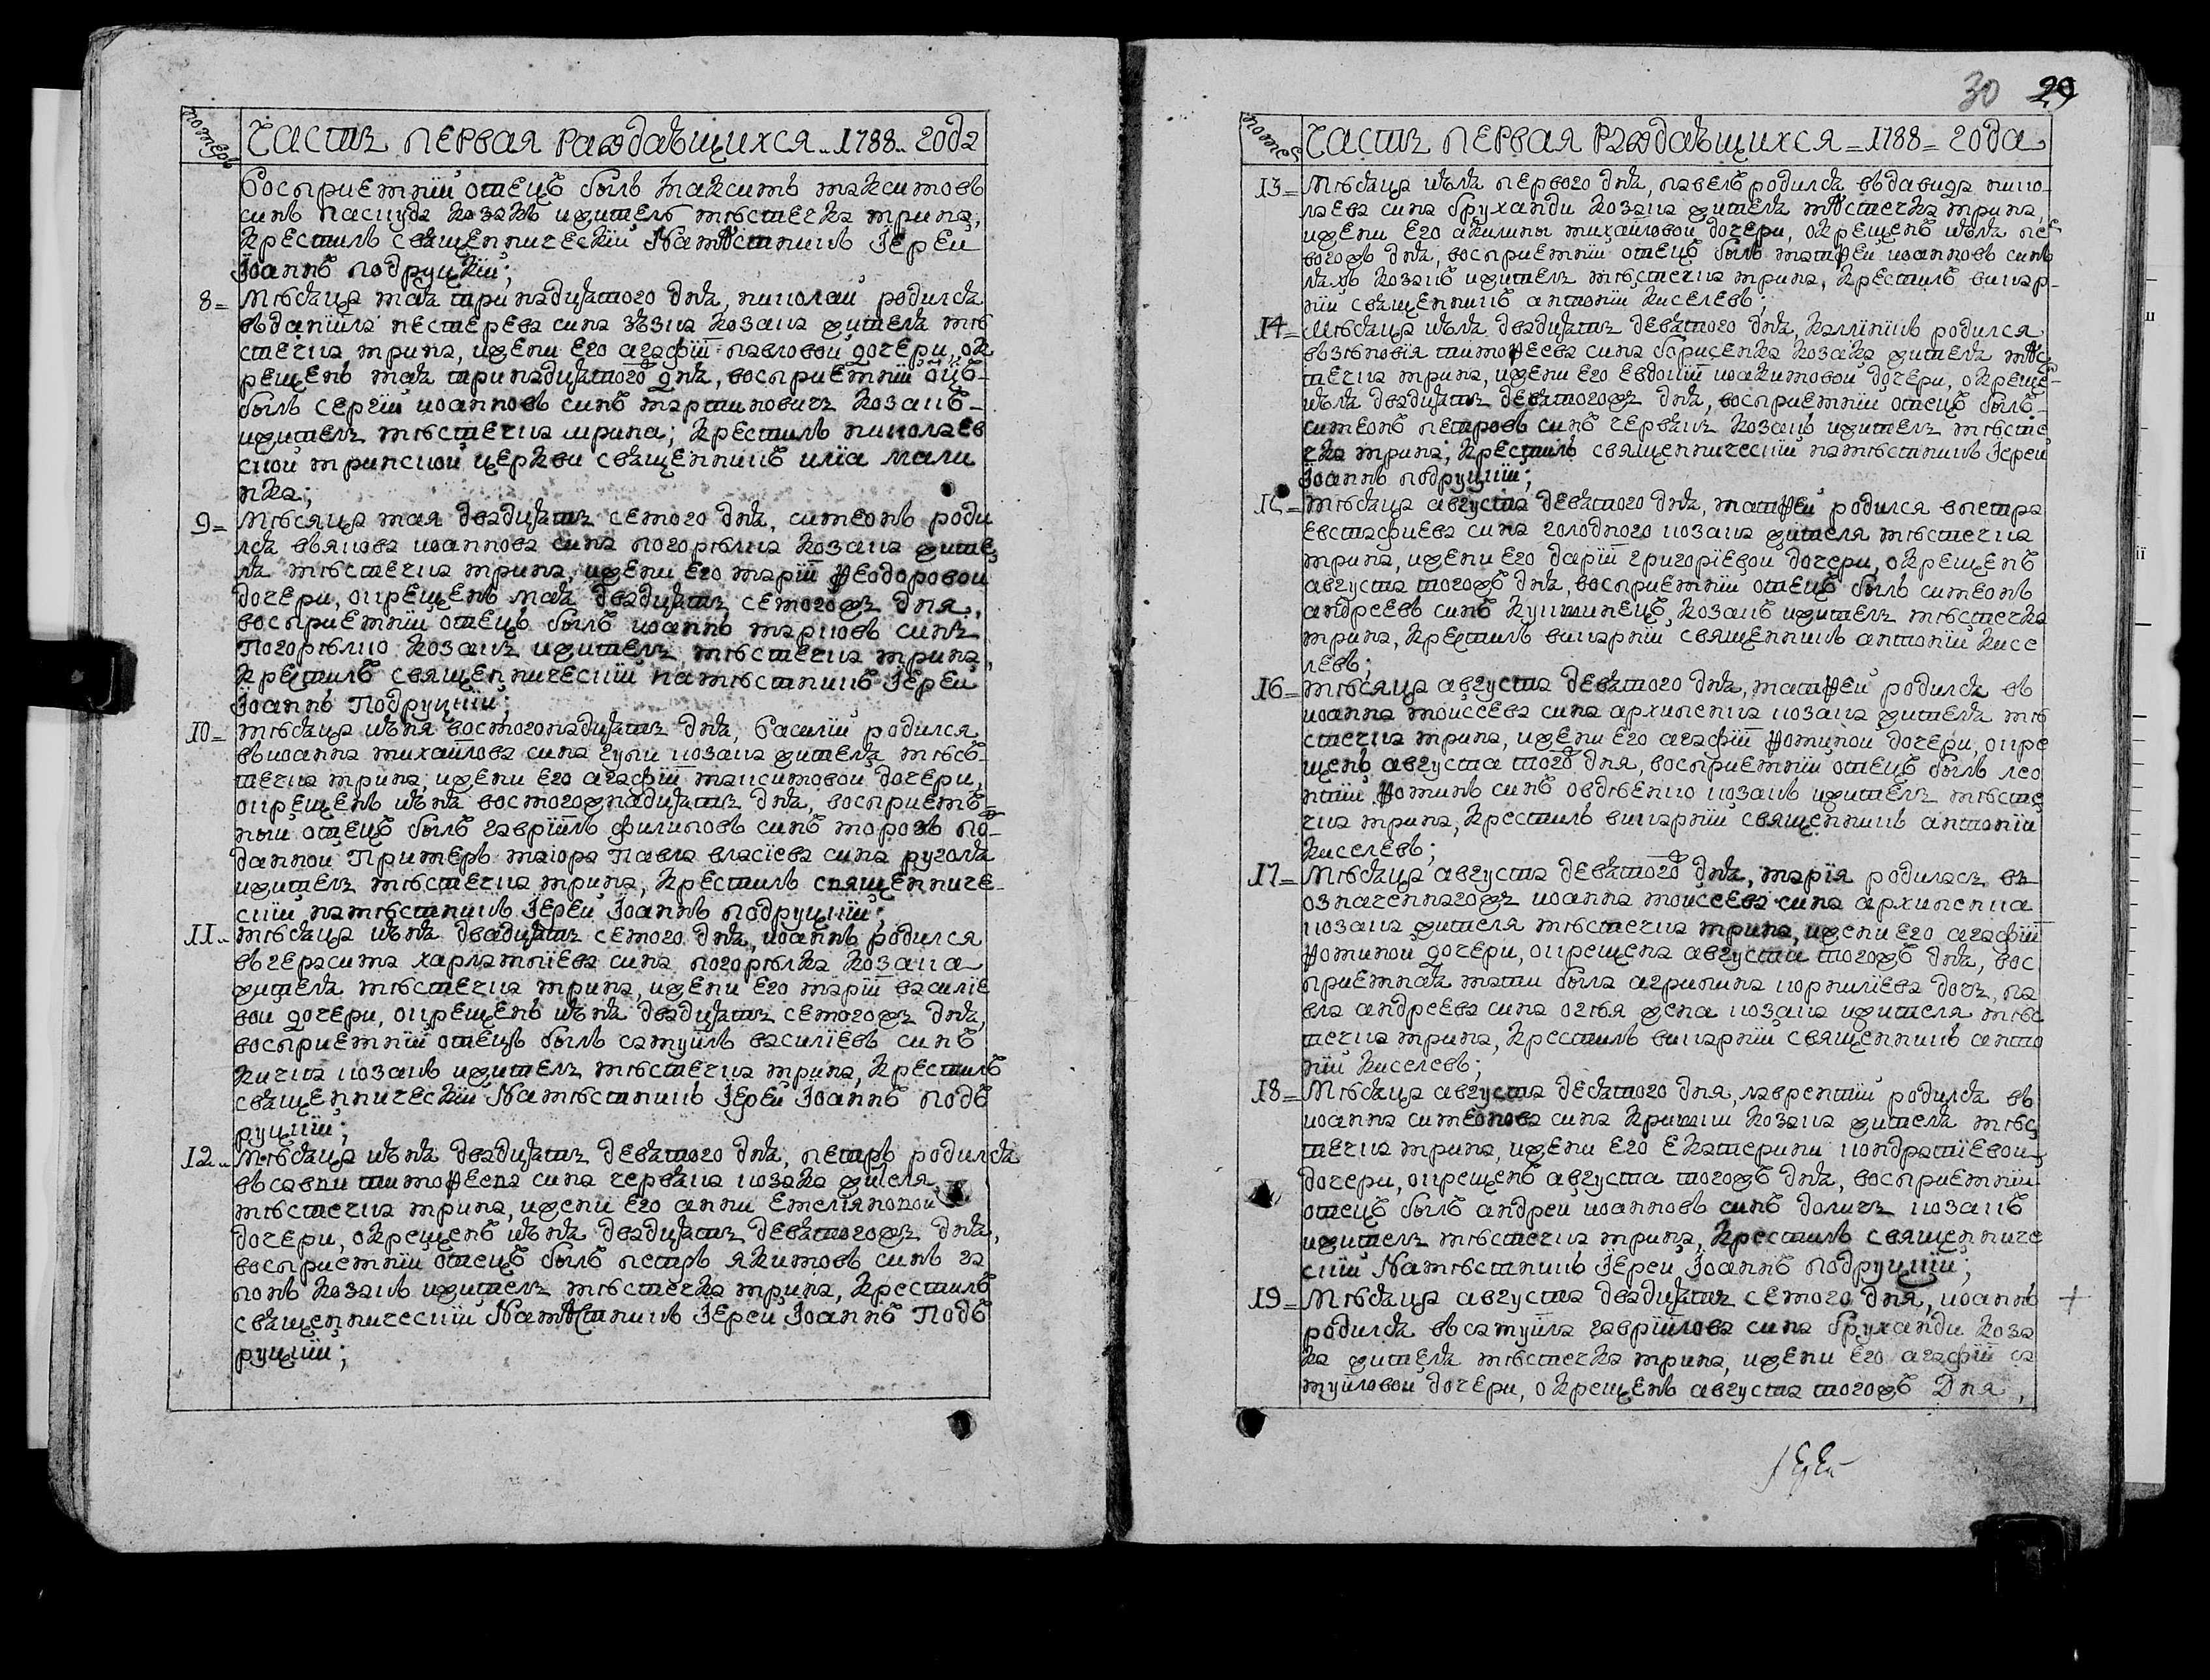 номерь
Часть первая раждающихся .. 1788 .. года
Восприемній отецъ былъ маѯимъ маѯимовъ
синъ пасцуда козакъ и житель мѣстечка мрина,
крестилъ священническій Намѣстникъ Іерей
Іоаннъ подруцкій;
8 = Мѣсяца мая тринадцятого дня, николай родился
въ даніила нестерева сина козака жителя мѣ
стечка мрина, и жени его агафіи павловой дочери, ок
рещенъ мая тринадцятого дня, восприемній оцъ
былъ сергій иоанновъ синъ мартиновичъ козакъ
и житель мѣстечка мрина; крестилъ николаев
ской мринской церкви священникъ илія мали
нка;
9 = Мѣсяца мая двадцять семого дня, симеонъ роди
лся въ якова иоаннова сина погорѣлка козака жите
ля мѣстечка мрина, и жени его маріи Ѳеодоровой
дочери, окрещенъ мая двадцять семогожъ дня,
восприемній отецъ былъ иоаннъ марковъ синъ
Погорѣлко козакъ и житель мѣстечка мрина,
крестилъ священническій намѣстникъ Іерей
Іоаннъ Подруцкій;
10 = мѣсяца июня восмогонадцять дня, Василій родился
въ иоанна михайлова сина козака жителя мѣс
течка мрина, и жени его агафіи макѯимовой дочери,
окрещенъ июня восмогожнадцять дня, восприем
ный отецъ былъ гавріилъ филиповъ синъ морозъ по
данной Примеръ маіора Павла власіева сина
и житель мѣстечка мрина, крестилъ священниче
скій намѣстникъ Іерей Іоаннъ подруцкій;
11 .. мѣсяца июня двадцять семого дня, иоаннъ родился
въ герасима харлампіева сина погорѣлка козака
жителя мѣстечка мрина, и жени его маріи василіе
вой дочери, окрещенъ июня двадцять семогожъ дня,
восприемній отецъ былъ самуйлъ василіевъ синъ
кичка козакъ и житель мѣстечка мрина, крестилъ
священническій Намѣстникъ Іерей Іоаннъ подъ
руцкій;
12 .. Мѣсяца июня двадцять девятого дня, петръ родился
въ савки тимоѲеева сина червяка козака жителя
мѣстечка мрина, и жени его анни емеліяновой
дочери, окрещенъ июня двадцять девятогожъ дня,
восприемній отецъ былъ петръ якимовъ синъ га
понъ козакъ и житель мѣстечка мрина, крестилъ
священническій Намѣстникъ Іерей Іоаннъ Подъ
руцкій;
30 29
номеръ
Часть первая раждающихся = 1788 = года
13 = Мѣсяца июля первого дня, павелъ родился въ давида нико
лаева сина бруханди козака жителя мѣстечка мрина,
и жени его акилины михайловой дочери, окрещенъ июля пер
вогожъ дня, восприемній отецъ былъ матѲей иоанновъ синъ
ляхъ козакъ и житель мѣстечка мрина, крестилъ викар
ній священникъ антоній киселевъ;
14 = Мѣсяца июля двадцять девятого дня, каллиникъ родился
въ зѣновія тимоѲеева сина борисенка козака жителя мѣс
течка мрина, и жени его евдокіи иоакимовой дочери, окреще
июля двадцять девятогожъ дня, восприемній отецъ былъ
симеонъ петровъ синъ червякъ козакъ и житель мѣсте
чка мрина, крестилъ священническій намѣстникъ Іерей
Іоаннъ подруцкій;
15 = мѣсяца августа девятого дня, матѲей родился в петра
евстафиева сина голодного козака жителя мѣстечка
мрина, и жени его даріи григоріевой дочери, окрещенъ
августа тогожъ дня, восприемній отецъ былъ симеонъ
андреевъ синъ козакъ и житель мѣстечка
мрина, крестилъ викарній священникъ антоній кисе
левъ;
16 = мѣсяца августа девятого дня, матѲей родился въ
иоанна моисеева сина архипенка козака жителя мѣ
стечка мрина, и жени его агафіи Ѳоминой дочери, окре
щенъ августа того дня, восприемній отецъ былъ лео
нтій Ѳоминъ синъ овдѣенко козакъ и житель мѣсте
чка мрина, крестилъ викарній священникъ антоній
киселевъ;
17 = Мѣсяца августа девятого дня, марія родилась въ
означенногожъ иоанна моисеева сина архипенка
козака жителя мѣстечка мрина, и жени его агафіи
Ѳоминой дочери, окрещена августа тогожъ дня, вос
приемная мати была агрипина корнилиева дочъ, па
вла андреева сина огѣя жена козака и жителя мѣс
течка мрина, крестилъ викарній священникъ анто
ній киселевъ;
18 = Мѣсяца августа десятого дня, лаврентій родился въ
иоанна симеонова сина козака жителя мѣс
течка мрина, и жени его екатерини кондратіевой
дочери, окрещенъ августа тогожъ дня, восприемній
отецъ былъ андрей иоанновъ синъ козакъ
и житель мѣстечка мрина, крестилъ священниче
скій Намѣстникъ Іерей Іоаннъ подруцкій;
19 = Мѣсяца августа двадцять семого дня, иоаннъ +
родился въ самуйла гавріилова сина бруханди коза
ка жителя мѣстечка мрина, и жени его агафіи са
муйловой дочери, окрещенъ августа тогожъ дня,